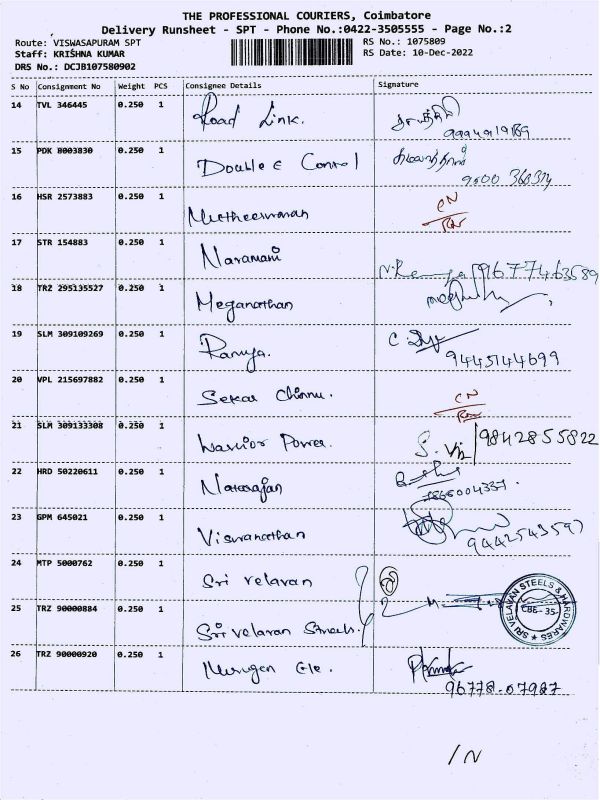 THE PROFESSIONAL COURIERS, Coimbatore
Delivery Runsheet - SPT - Phone No.:0422-3505555 - Page No.:2
Route: VISWASAPURAM SPT RS No.: 1075809
Staff: KRISHNA KUMAR RS Date: 10-Dec-2022
DRS No.: DCJB107580902
S No Consignment No Weight PCS Consignee Details Signature
14 TVL 346445 0.250 1 Road Link.
15 PDK 8003830 0.250 1 Double E Control
16 HSR 2573883 0.250 1 CN
17 STR 154883 0.250 1 Naramani 9677463589
18 TRZ 295135527 0.250 1 Meganathan
19 SLM 309109269 0.250 1 Ramya. 9445144699
20 VPL 215697882 0.250 1 Sekar Chinnu. CN
21 SLM 309133308 0.250 1 Warrior Power. 9842855822
22 HRD 50220611 0.250 1 Natarajan
23 GPM 645021 0.250 1 Viswanathan
24 MTP 5000762 0.250 1 Sri Velavan
25 TRZ 90000884 0.250 1 Sri Velavan
SRI VELAVAN STEELS & HARDWARES
CBE-35
26 TRZ 90000920 0.250 1 Murugan Ele. 96778-07987